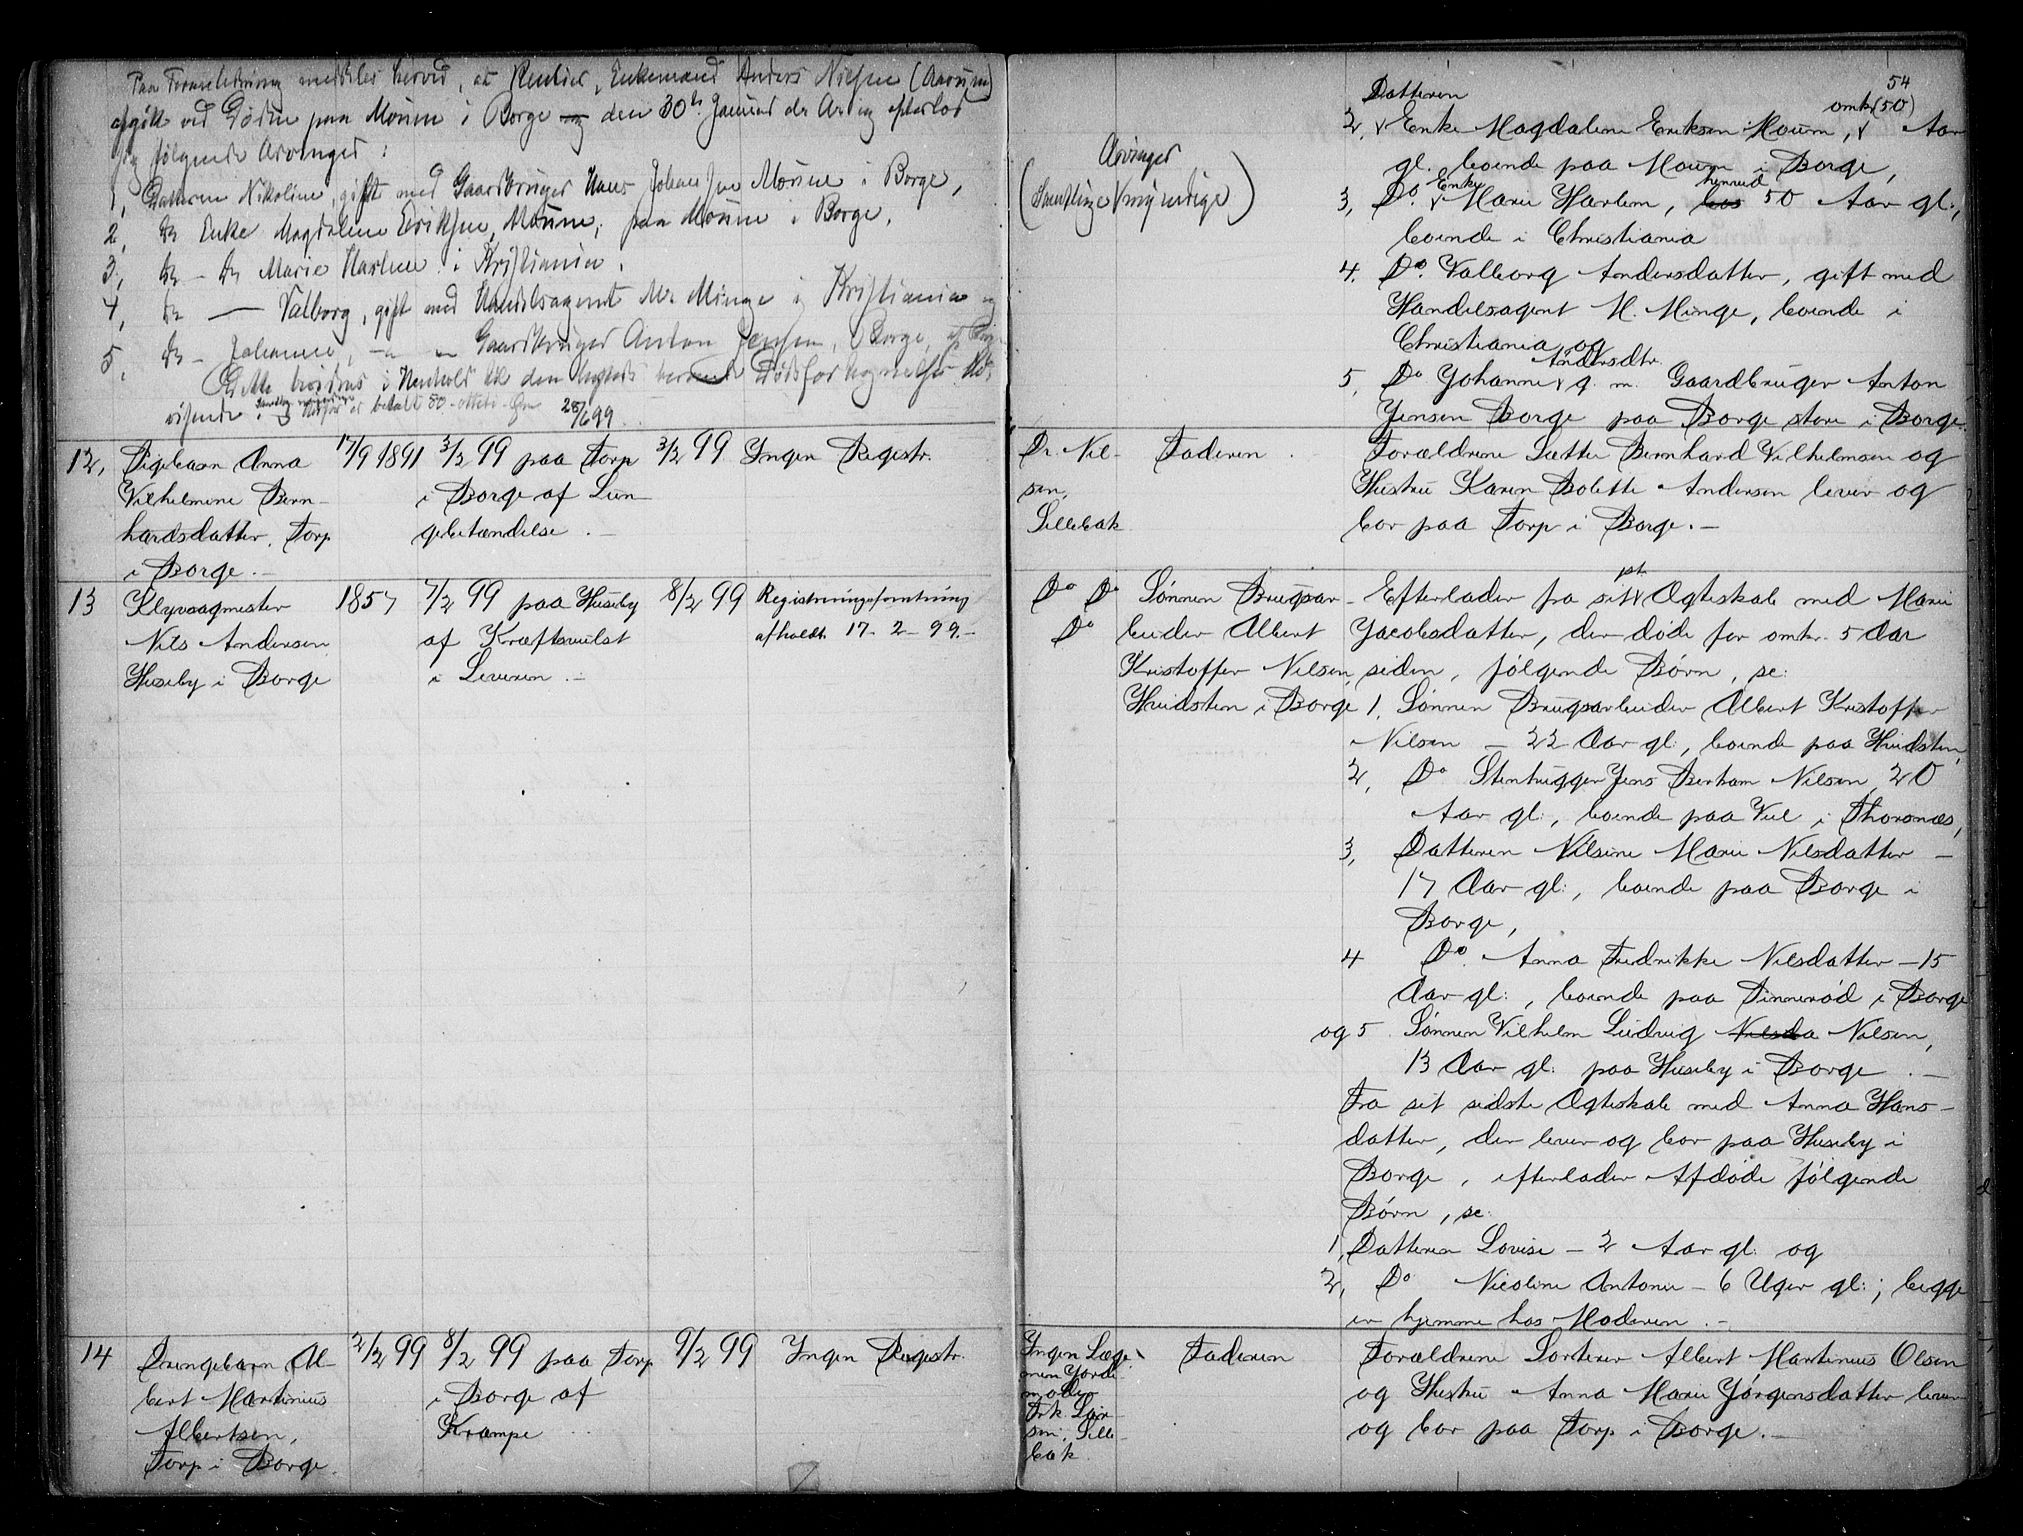 Paa Foranledning meddeles herved, at Rentier, Enkemand Anders Nilsen (Aarum)
afgik ved Døden paa Moum i Borge den 30te Januar d. A. og efterlod
sig følgende Arvinger:
1, Datteren Nikoline, gift med Gaardbruger Hans Johansen Moum i Borge,
2, do Enke Magdalene Eriksen Moum, paa Moum i Borge,
3, do - do Marie Harlem i Kristiania,
4, do — Valborg, gift med Handelsagent M. Minge i Kristiania og
5, do - Johanne, - " - Gaardbruger Anton Jensen, Borge, af Borge
Dette bevidnes i Henhold til den
visende. Herfor er betalt 80 - otteti - Øre 28/6 99
12, Pigebarn Anna
Vilhelmine Bern-
hardsdatter, Torp
i Borge.-
17/9 1891
3/2 99 paa Torp
i Borge af Lun-
gebetændelse.-
3/2 99
Ingen Registr.
13 Klyvsagmester
Nils Andersen
Huseby i Borge
1857
7/2 99 paa Huseby
af Kræftsvulst
i Leveren.-
8/2 99
Registreringsforretning
afholdt 17-2-99.-
14 Drengebarn Al-
bert Martinius
Albertsen,
Torp i Borge.
2/2 99
8/2 99 paa Torp
i Borge af
Krampe
9/2 99
Ingen Registr.
54
Arvinger
(Samtlige Myndige)
Datteren
omkr (50)
2, Enke Magdalene Eriksen Moum, Aar
gl. boende paa Moum i Borge,
Enke henved
3, Do. Marie Harlem, 50 Aar gl.,
boende i Christiania
4. Do. Valborg Andersdatter, gift med
Handelsagent M. Minge, boende i
Christiania og
Andersdtr.
5, Do Johanne g. m. Gaardbruger Anton
Jensen Borge paa Borge store i Borge.
Dr. Nil-
sen,
Sellebak
Faderen.
Forældrene Sætter Bernhard Vilhelmsen og
Hustru Karen Bolette Andersen lever og
bor paa Torp i Borge.-
Do Do
Do
Sønnen Brugsar-
beider Albert
Kristoffer Nilsen,
Hvidsten i Borge
Efterlader fra sit Ægteskab med Marie
Jacobsdatter, der døde for omkr. 5 Aar
siden, følgende Børn, sc:
1, Sønnen Brugsarbeider Albert Kristoffer
Nilsen - 22 Aar gl., boende paa Hvidsten,
2, Do Stenhugger Jens Bertram Nilsen, 20
Aar gl., boende paa Viel i Thorsnæs,
3, Datteren Nilsine Marie Nilsdatter -
17 Aar gl., boende paa Borge i
Borge,
4 Do. Anna Fredrikke Nilsdatter - 15
Aar gl., boende paa Dinnerød i Borge
og 5. Sønnen Vilhelm Ludvig Nilsda Nilsen,
13 Aar gl. paa Huseby i Borge.-
Fra sit sidste Ægteskab med Anna Hans-
datter, der lever og bor paa Huseby i
Borge, efterlader Afdøde følgende
Børn, sc:
1, Datteren Lovise - 2 Aar gl. og
2, Do Nicoline Antonie - 6 Uger gl.; begge
er hjemme hos Moderen.-
Ingen Læge,
men Jorde-
moder
Frk. Lar-
sen, Selle-
bak
Faderen
Forældrene Sorterer Albert Martinius Olsen
og Hustru Anna Marie Jørgensdatter lever
og bor paa Torp i Borge.-